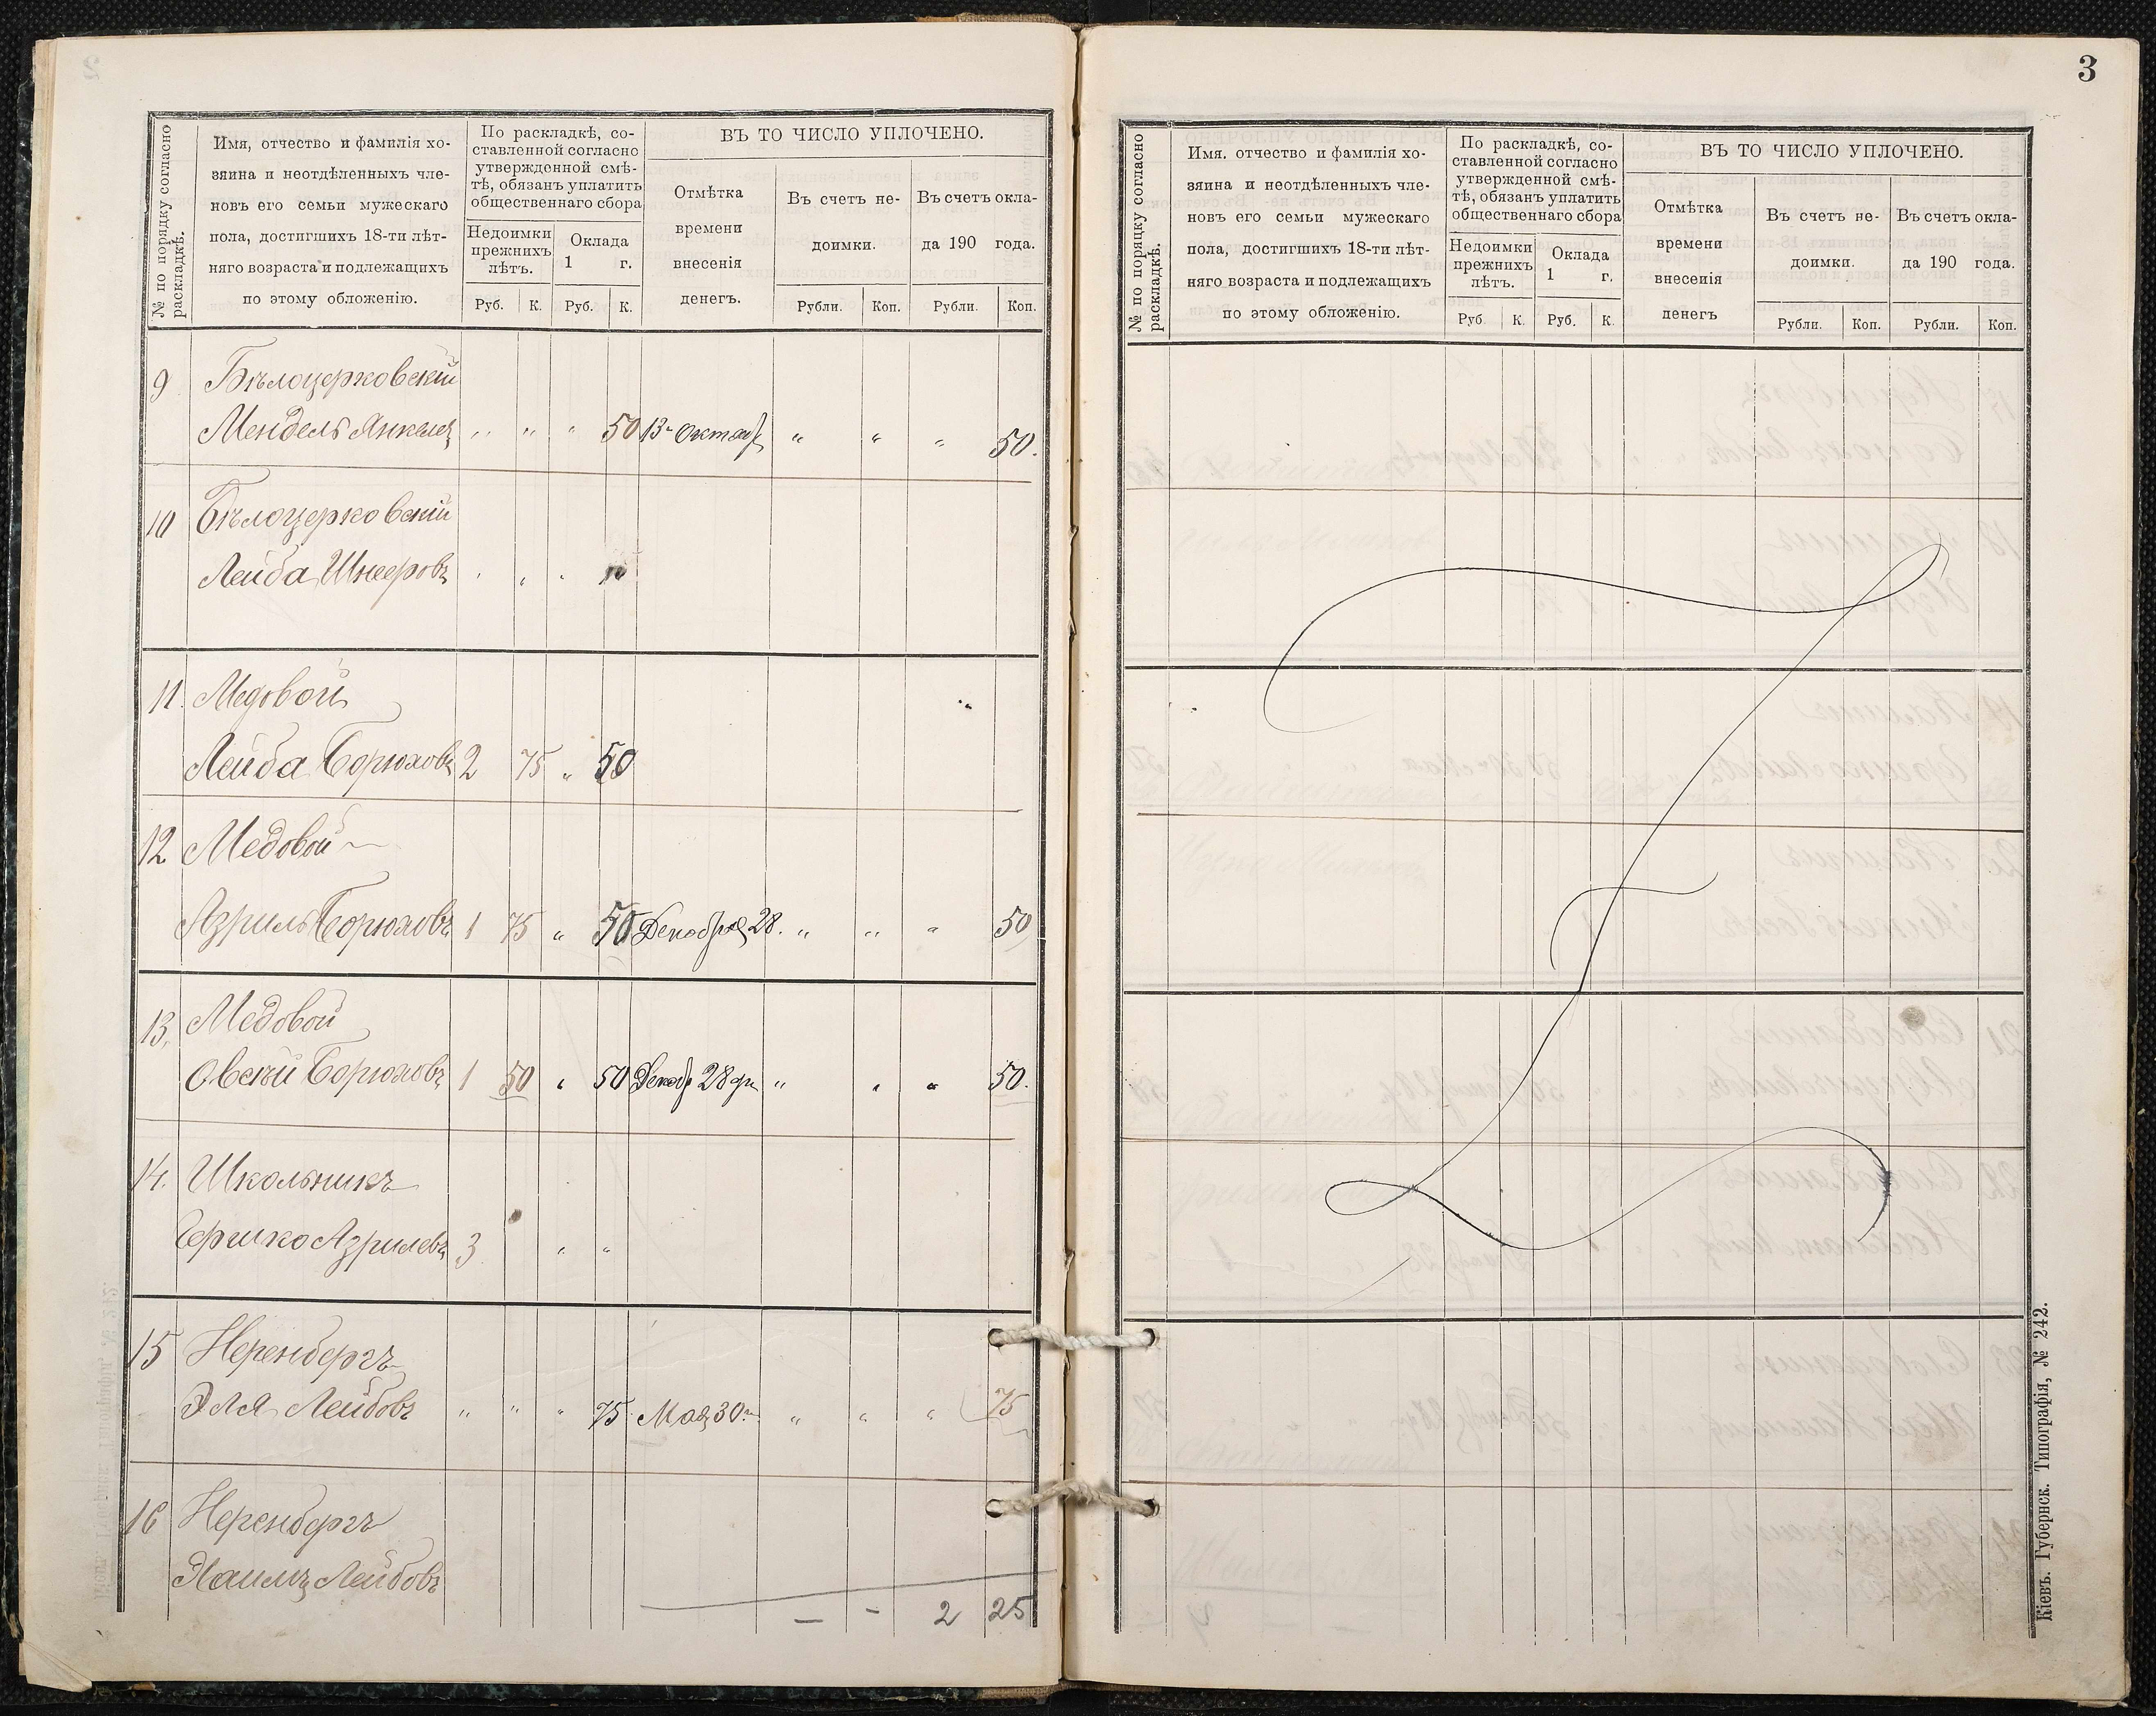 3
№ по порядку согласно раскладкѣ.
Имя, отчество и фамилія хо-
зяина и неотдѣленныхъ чле-
новъ его семьи мужескаго
пола, достигшихъ 18-ти лѣт-
няго возраста и подлежащихъ
по этому обложенію.
По раскладкѣ, со-
ставленной согласно
утвержденной смѣ-
тѣ, обязанъ уплатить
общественнаго сбора
Недоимки прежнихъ лѣтъ.
Оклада 1 г.
Руб. К. Руб. К.
ВЪ ТО ЧИСЛО УПЛОЧЕНО.
Отмѣтка
времени
внесенія
денегъ.
Въ счетъ не-
доимки.
Въ счетъ окла-
да 190 года.
Рубли. Коп. Рубли. Коп.
9 Бѣлоцерковскій
Мендель Янкелев „ „ „ 50 13 Октяб „ „ „ 50.
10 Бѣлоцерковскій
Лейба Шнееровъ
11. Медовой
Лейба Борюховъ 2 75 „ 50
12 Медовой
Азриль Борюховъ 1 75 „ 50 Декабря 28. „ „ „ 50
13. Медовой
Овсѣй Борюховъ 1 50 „ 50 Декаб 28 дн „ „ „ 50.
14. Школьникъ
Гершко Азрилевъ 3 „ „
15 Неренбергъ
Эля Лейбовъ „ „ „ 75 Мая 30 „ „ „ 75
16 Неренбергъ
Хаимъ Лейбовъ
— — 2 25
№ по порядку согласно раскладкѣ.
Имя. отчество и фамилія хо-
зяина и неотдѣленныхъ чле-
новъ его семьи мужескаго
пола, достигшихъ 18-ти лѣт-
няго возраста и подлежащихъ
по этому обложенію.
По раскладкѣ, со-
ставленной согласно
утвержденной смѣ-
тѣ, обязанъ уплатить
общественнаго сбора
Недоимки прежнихъ лѣтъ.
Оклада 1 г.
Руб. К. Руб. К.
ВЪ ТО ЧИСЛО УПЛОЧЕНО.
Отмѣтка
времени
внесенія
денегъ
Въ счетъ не-
доимки.
Въ счетъ окла-
да 190 года.
Рубли. Коп. Рубли. Коп.
Кіевъ. Губернск. Типографія, № 242.